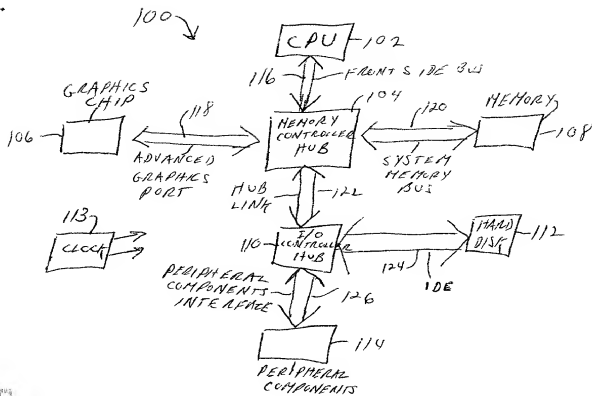 100
CPU
102
116
FRONT SIDE BUS
GRAPHICS
CHIP
106
118
ADVANCED
GRAPHICS
PORT
104
MEMORY
CONTROLLER
HUB
120
SYSTEM
MEMORY
BUS
MEMORY
108
HUB
LINK
122
113
CLOCK
110
I/O
CONTROLLER
HUB
124
IDE
HARD
DISK
112
PERIPHERAL
COMPONENTS
INTERFACE
126
114
PERIPHERAL
COMPONENTS